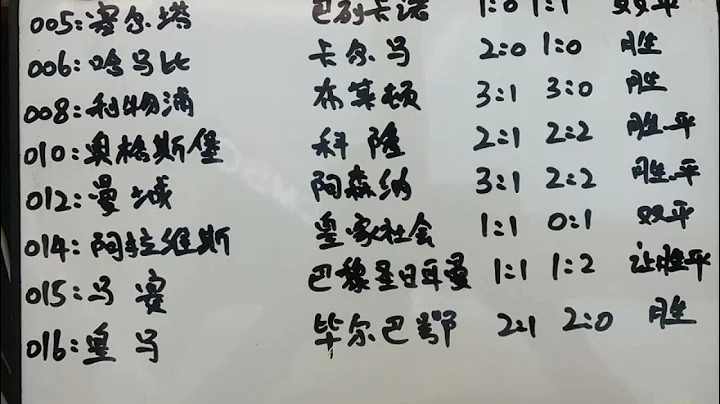 005:塞尔塔 巴列卡诺 1:0 1:1 双平
006:哈马比 卡尔马 2:0 1:0 胜
008:利物浦 布莱顿 3:1 3:0 胜
010:奥格斯堡 科隆 2:1 2:2 胜.平
012:曼城 阿森纳 3:1 2:2 胜.平
014:阿拉维斯 皇家社会 1:1 0:1 双平
015:马赛 巴黎圣日耳曼 1:1 1:2 让胜平
016:皇马 毕尔巴鄂 2:1 2:0 胜